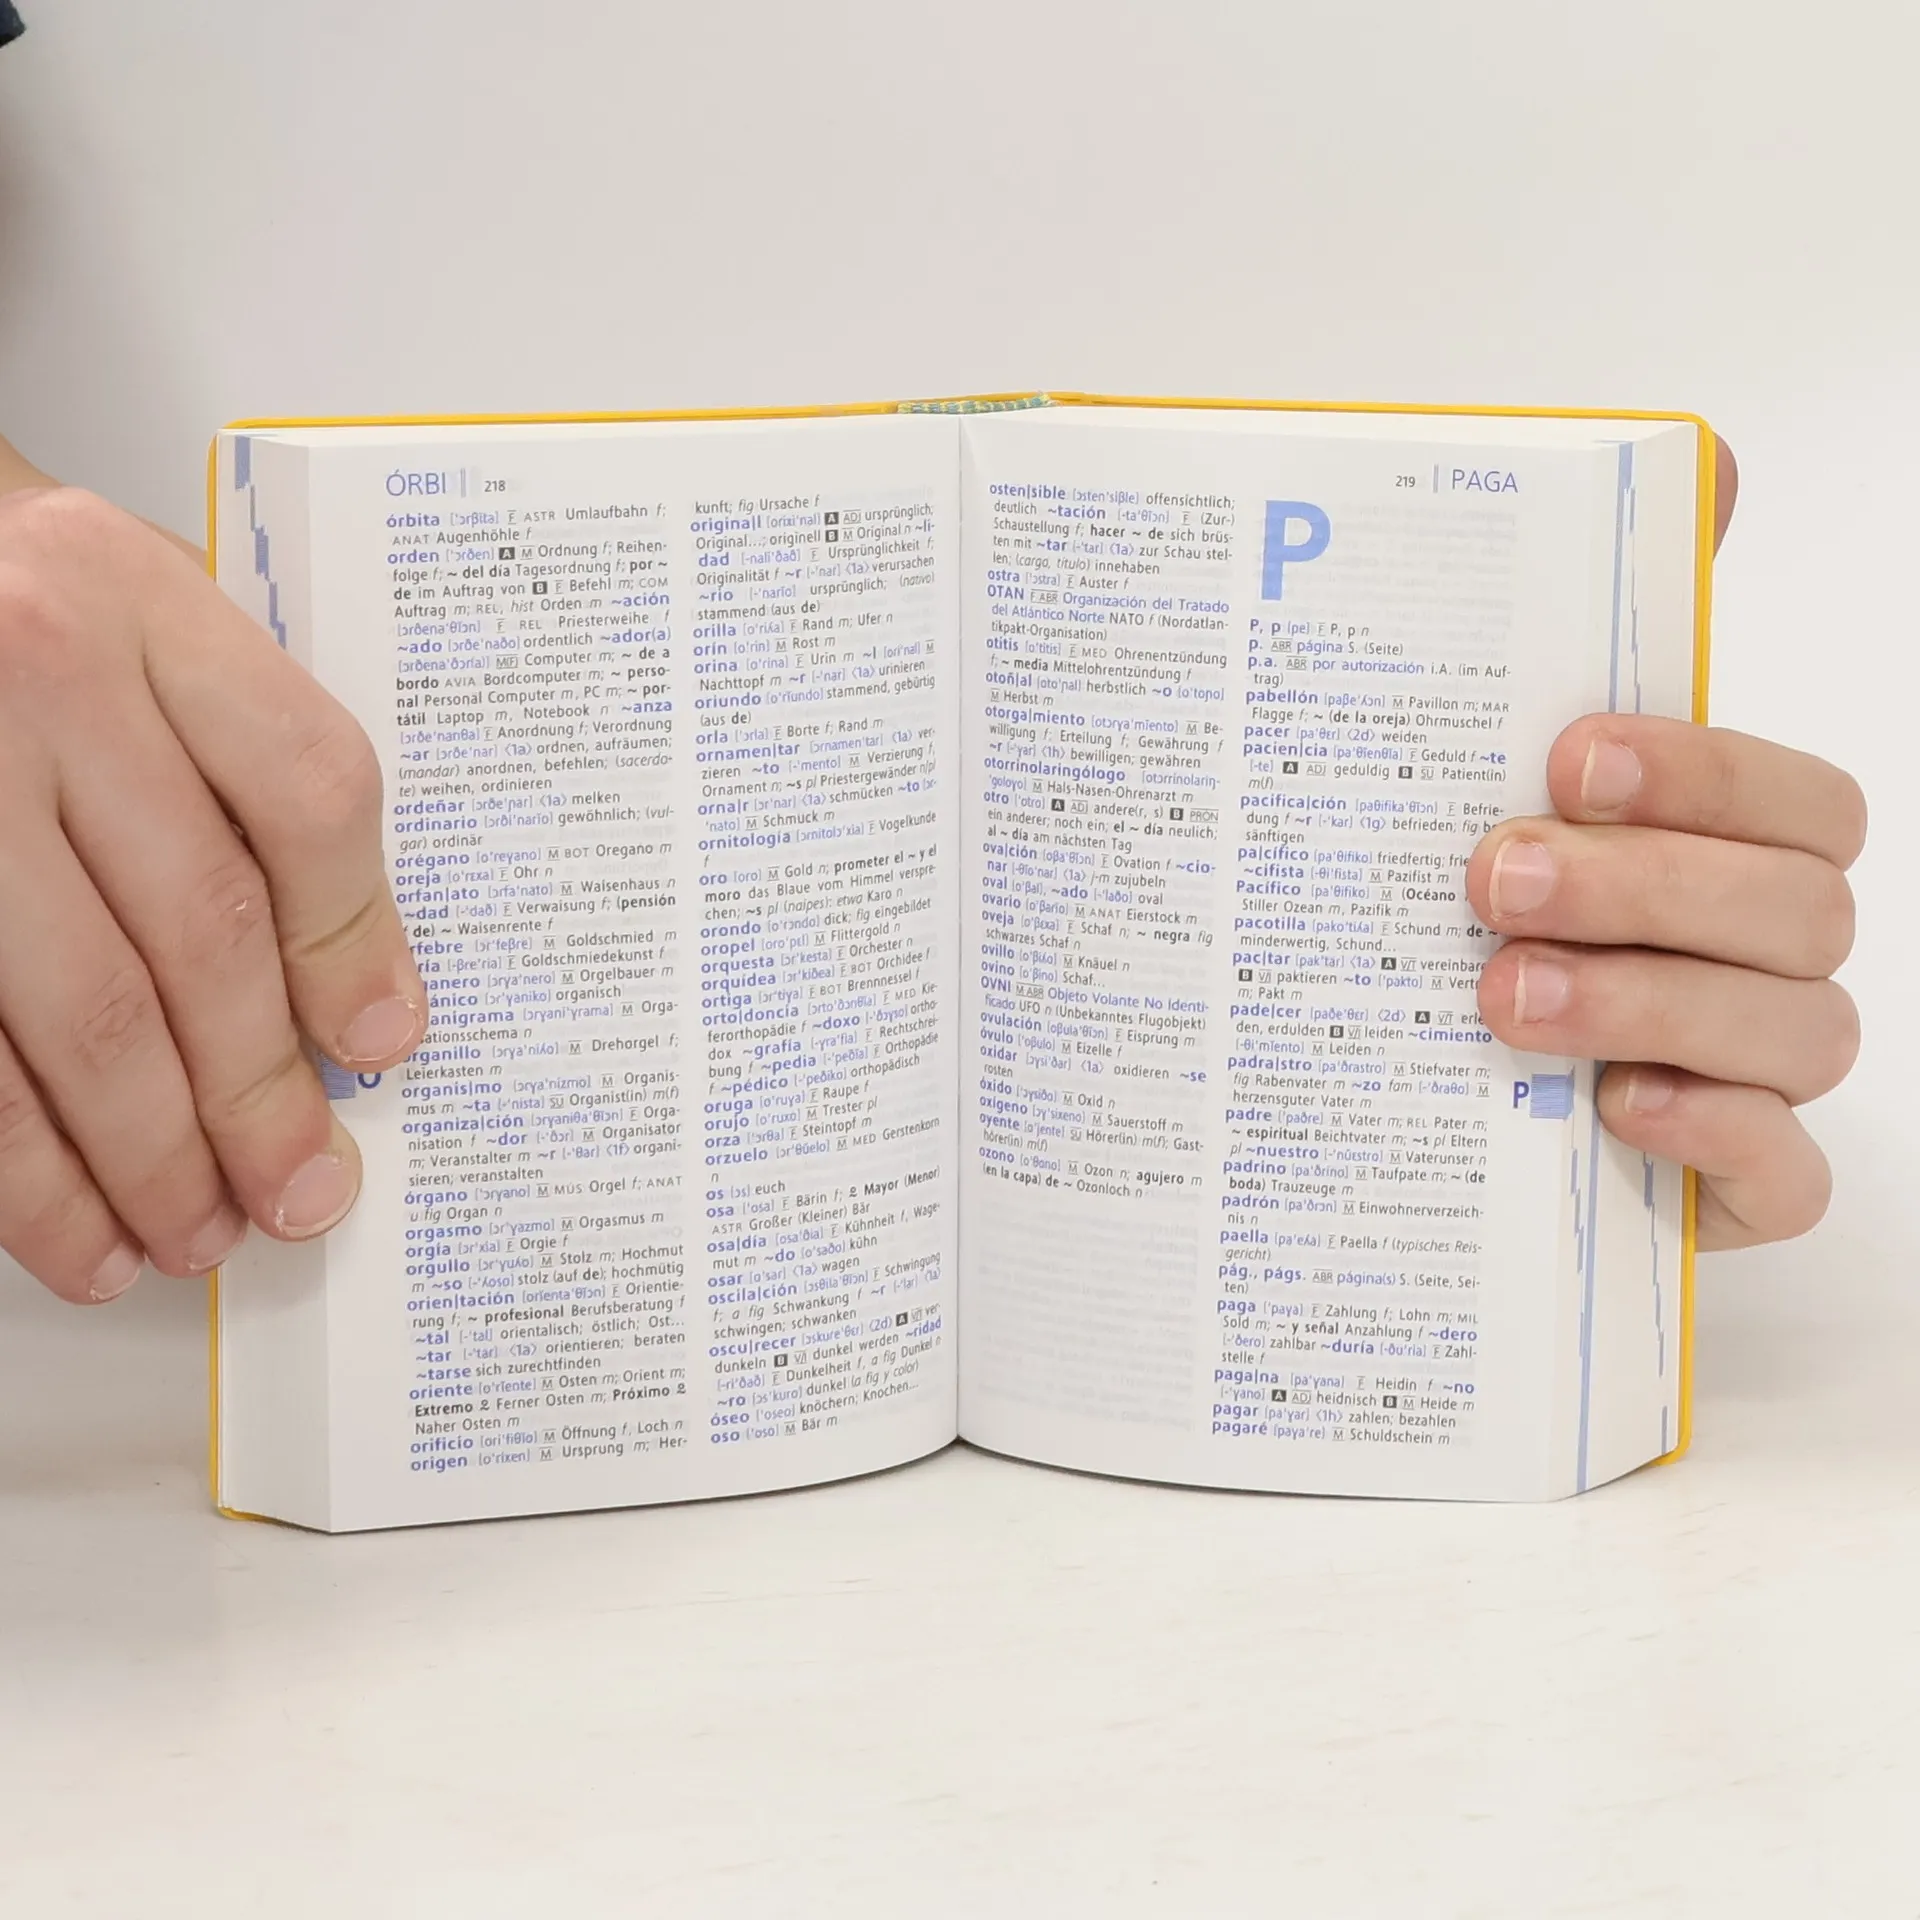 ÓRBI 218
órbita ['ɔrβita] F ASTR Umlaufbahn f;
ANAT Augenhöhle f
orden ['ɔrðen] A M Ordnung f; Reihen-
folge f; ~ del día Tagesordnung f; por ~
de im Auftrag von B F Befehl m; COM
Auftrag m; REL, hist Orden m ~ación
[ɔrðena'θĭɔn] F REL Priesterweihe f
~ado [ɔrðe'naðo] ordentlich ~ador(a)
[ɔrðena'ðɔr(a)] M(F) Computer m; ~ de a
bordo AVIA Bordcomputer m; ~ perso-
nal Personal Computer m, PC m; ~ por-
tátil Laptop m, Notebook n ~anza
[ɔrðe'nanθa] F Anordnung f; Verordnung
~ar [ɔrðe'nar] ⟨1a⟩ ordnen, aufräumen;
(mandar) anordnen, befehlen; (sacerdo-
te) weihen, ordinieren
ordeñar [ɔrðe'ɲar] ⟨1a⟩ melken
ordinario [ɔrði'narĭo] gewöhnlich; (vul-
gar) ordinär
orégano [o'reɣano] M BOT Oregano m
oreja [o'rɛxa] F Ohr n
orfan|ato [ɔrfa'nato] M Waisenhaus n
~dad [-'dað] F Verwaisung f; (pensión
de) ~ Waisenrente f
rfebre [ɔr'feβre] M Goldschmied m
ría [-βre'ria] F Goldschmiedekunst f
ganero [ɔrɣa'nero] M Orgelbauer m
ánico [ɔr'ɣaniko] organisch
anigrama [ɔrɣani'ɣrama] M Orga-
ationsschema n
organillo [ɔrɣa'niʎo] M Drehorgel f;
Leierkasten m
organis|mo [ɔrɣa'nizmo] M Organis-
mus m ~ta [-'nista] SU Organist(in) m(f)
organiza|ción [ɔrɣaniθa'θĭɔn] F Orga-
nisation f ~dor [-'ðɔr] M Organisator
m; Veranstalter m ~r [-'θar] ⟨1f⟩ organi-
sieren; veranstalten
órgano ['ɔrɣano] M MUS Orgel f; ANAT
u fig Organ n
orgasmo [ɔr'ɣazmo] M Orgasmus m
orgía [ɔr'xia] F Orgie f
orgullo [ɔr'ɣuʎo] M Stolz m; Hochmut
m ~so [-'ʎoso] stolz (auf de); hochmütig
orien|tación [orĭenta'θĭɔn] F Orientie-
rung f; ~ profesional Berufsberatung f
~tal [-'tal] orientalisch; östlich; Ost...
~tar [-'tar] ⟨1a⟩ orientieren; beraten
~tarse sich zurechtfinden
oriente [o'rĭente] M Osten m; Orient m;
Extremo ♀ Ferner Osten m; Próximo ♀
Naher Osten m
orificio [ori'fiθĭo] M Öffnung f, Loch n
origen [o'rixen] M Ursprung m; Her-
kunft; fig Ursache f
origina|l [orixi'nal] A ADJ ursprünglich;
Original...; originell B M Original n ~li-
dad [-nali'ðað] F Ursprünglichkeit f;
Originalität f ~r [-'nar] ⟨1a⟩ verursachen
~rio [-'narĭo] ursprünglich; (nativo)
stammend (aus de)
orilla [o'riʎa] F Rand m; Ufer n
orín [o'rin] M Rost m
orina [o'rina] F Urin m ~l [ori'nal] M
Nachttopf m ~r [-'nar] ⟨1a⟩ urinieren
oriundo [o'rĭundo] stammend, gebürtig
(aus de)
orla ['ɔrla] F Borte f; Rand m
ornamen|tar [ɔrnamen'tar] ⟨1a⟩ ver-
zieren ~to [-'mento] M Verzierung f,
Ornament n; ~s pl Priestergewänder n/pl
orna|r [ɔr'nar] ⟨1a⟩ schmücken ~to [ɔr-
'nato] M Schmuck m
ornitología [ɔrnitolɔ'xia] F Vogelkunde
f
oro [oro] M Gold n; prometer el ~ y el
moro das Blaue vom Himmel verspre-
chen; ~s pl (naipes): etwa Karo n
orondo [o'rɔndo] dick; fig eingebildet
oropel [oro'pɛl] M Flittergold n
orquesta [ɔr'kesta] F Orchester n
orquídea [ɔr'kiðea] F BOT Orchidee f
ortiga [ɔr'tiɣa] F BOT Brennnessel f
orto|doncia [ɔrto'ðɔnθĭa] F MED Kie-
ferorthopädie f ~doxo [-'ðɔɣso] ortho-
dox ~grafía [-ɣra'fia] F Rechtschrei-
bung f ~pedia [-'peðĭa] F Orthopädie
f ~pédico [-'peðiko] orthopädisch
oruga [o'ruɣa] F Raupe f
orujo [o'ruxo] M Trester pl
orza ['ɔrθa] F Steintopf m
orzuelo [ɔr'θŭelo] M MED Gerstenkorn
n
os [ɔs] euch
osa ['osa] F Bärin f; ♀ Mayor (Menor)
ASTR Großer (Kleiner) Bär
osa|día [osa'ðia] F Kühnheit f, Wage-
mut m ~do [o'saðo] kühn
osar [o'sar] ⟨1a⟩ wagen
oscila|ción [ɔsθila'θĭɔn] F Schwingung
f; a fig Schwankung f ~r [-'lar] ⟨1a⟩
schwingen; schwanken
oscu|recer [ɔskure'θɛr] ⟨2d⟩ A V/T ver-
dunkeln B V/I dunkel werden ~ridad
[-ri'ðað] F Dunkelheit f, a fig Dunkel n
~ro [ɔs'kuro] dunkel (a fig y color)
óseo ['oseo] knöchern; Knochen...
oso ['oso] M Bär m
O
219 PAGA
osten|sible [ɔsten'siβle] offensichtlich;
deutlich ~tación [-ta'θĭɔn] F (Zur-)
Schaustellung f; hacer ~ de sich brüs-
ten mit ~tar [-'tar] ⟨1a⟩ zur Schau stel-
len; (cargo, título) innehaben
ostra ['ɔstra] F Auster f
OTAN F ABR Organización del Tratado
del Atlántico Norte NATO f (Nordatlan-
tikpakt-Organisation)
otitis [o'titis] F MED Ohrenentzündung
f; ~ media Mittelohrentzündung f
otoñ|al [oto'ɲal] herbstlich ~o [o'toɲo]
M Herbst m
otorga|miento [otɔrɣa'mĭento] M Be-
willigung f; Erteilung f; Gewährung f
~r [-'ɣar] ⟨1h⟩ bewilligen; gewähren
otorrinolaringólogo [otɔrrinolariŋ-
'goloɣo] M Hals-Nasen-Ohrenarzt m
otro ['otro] A ADJ andere(r, s) B PRON
ein anderer; noch ein; el ~ día neulich;
al ~ día am nächsten Tag
ova|ción [oβa'θĭɔn] F Ovation f ~cio-
nar [-θĭo'nar] ⟨1a⟩ j-m zujubeln
oval [o'βal], ~ado [-'laðo] oval
ovario [o'βarĭo] M ANAT Eierstock m
oveja [o'βɛxa] F Schaf n; ~ negra fig
schwarzes Schaf n
ovillo [o'βiʎo] M Knäuel n
ovino [o'βino] Schaf...
OVNI M ABR Objeto Volante No Identi-
ficado UFO n (Unbekanntes Flugobjekt)
ovulación [oβula'θĭɔn] F Eisprung m
óvulo ['oβulo] M Eizelle f
oxidar [ɔɣsi'ðar] ⟨1a⟩ oxidieren ~se
rosten
óxido ['ɔɣsiðo] M Oxid n
oxígeno [ɔɣ'sixeno] M Sauerstoff m
oyente [o'jente] SU Hörer(in) m(f); Gast-
hörer(in) m(f)
ozono [o'θono] M Ozon n; agujero m
(en la capa) de ~ Ozonloch n
P
P, p [pe] F P, p n
p. ABR página S. (Seite)
p.a. ABR por autorización i.A. (im Auf-
trag)
pabellón [paβe'ʎɔn] M Pavillon m; MAR
Flagge f; ~ (de la oreja) Ohrmuschel f
pacer [pa'θɛr] ⟨2d⟩ weiden
pacien|cia [pa'θĭenθĭa] F Geduld f ~te
[-te] A ADJ geduldig B SU Patient(in)
m(f)
pacifica|ción [paθifika'θĭɔn] F Befrie-
dung f ~r [-'kar] ⟨1g⟩ befrieden; fig be
sänftigen
pa|cífico [pa'θifiko] friedfertig; frie
~cifista [-θi'fista] M Pazifist m
Pacífico [pa'θifiko] M (Océano
Stiller Ozean m, Pazifik m
pacotilla [pako'tiʎa] F Schund m; de ~
minderwertig, Schund...
pac|tar [pak'tar] ⟨1a⟩ A V/T vereinbare
B V/I paktieren ~to ['pakto] M Vertr
m; Pakt m
pade|cer [paðe'θɛr] ⟨2d⟩ A V/T erle
den, erdulden B V/I leiden ~cimiento
[-θi'mĭento] M Leiden n
padra|stro [pa'ðrastro] M Stiefvater m;
fig Rabenvater m ~zo fam [-'ðraθo] M
herzensguter Vater m
padre ['paðre] M Vater m; REL Pater m;
~ espiritual Beichtvater m; ~s pl Eltern
pl ~nuestro [-'nŭestro] M Vaterunser n
padrino [pa'ðrino] M Taufpate m; ~ (de
boda) Trauzeuge m
padrón [pa'ðrɔn] M Einwohnerverzeich-
nis n
paella [pa'eʎa] F Paella f (typisches Reis-
gericht)
pág., págs. ABR página(s) S. (Seite, Sei-
ten)
paga ['paɣa] F Zahlung f; Lohn m; MIL
Sold m; ~ y señal Anzahlung f ~dero
[-'ðero] zahlbar ~duría [-ðu'ria] F Zahl-
stelle f
paga|na [pa'ɣana] F Heidin f ~no
[-'ɣano] A ADJ heidnisch B M Heide m
pagar [pa'ɣar] ⟨1h⟩ zahlen; bezahlen
pagaré [paɣa're] M Schuldschein m
P